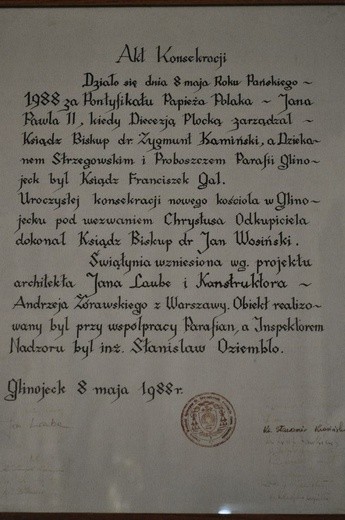 Akt Konsekracji
Działo się dnia 8 maja Roku Pańskiego ~
1988 za Pontyfikatu Papieża Polaka ~ Jana
Pawła II, kiedy Diecezją Płocką zarządzał ~
Ksiądz Biskup dr. Zygmunt Kamiński, a Dzieka-
nem Strzegowskim i Proboszczem Parafii Glino-
jeck był Ksiądz Franciszek Gal.
Uroczystej konsekracji nowego kościoła w Glino-
jecku pod wezwaniem Chrystusa Odkupiciela
dokonał Ksiądz Biskup dr Jan Wosiński.
Świątynia wzniesiona wg. projektu
architekta Jana Laube i Konstruktora ~
Andrzeja Żórawskiego z Warszawy. Obiekt realizo-
wany był przy współpracy Parafian, a Inspektorem
Nadzoru był inż. Stanisław Dziembło.
Glinojeck 8 maja 1988 r.